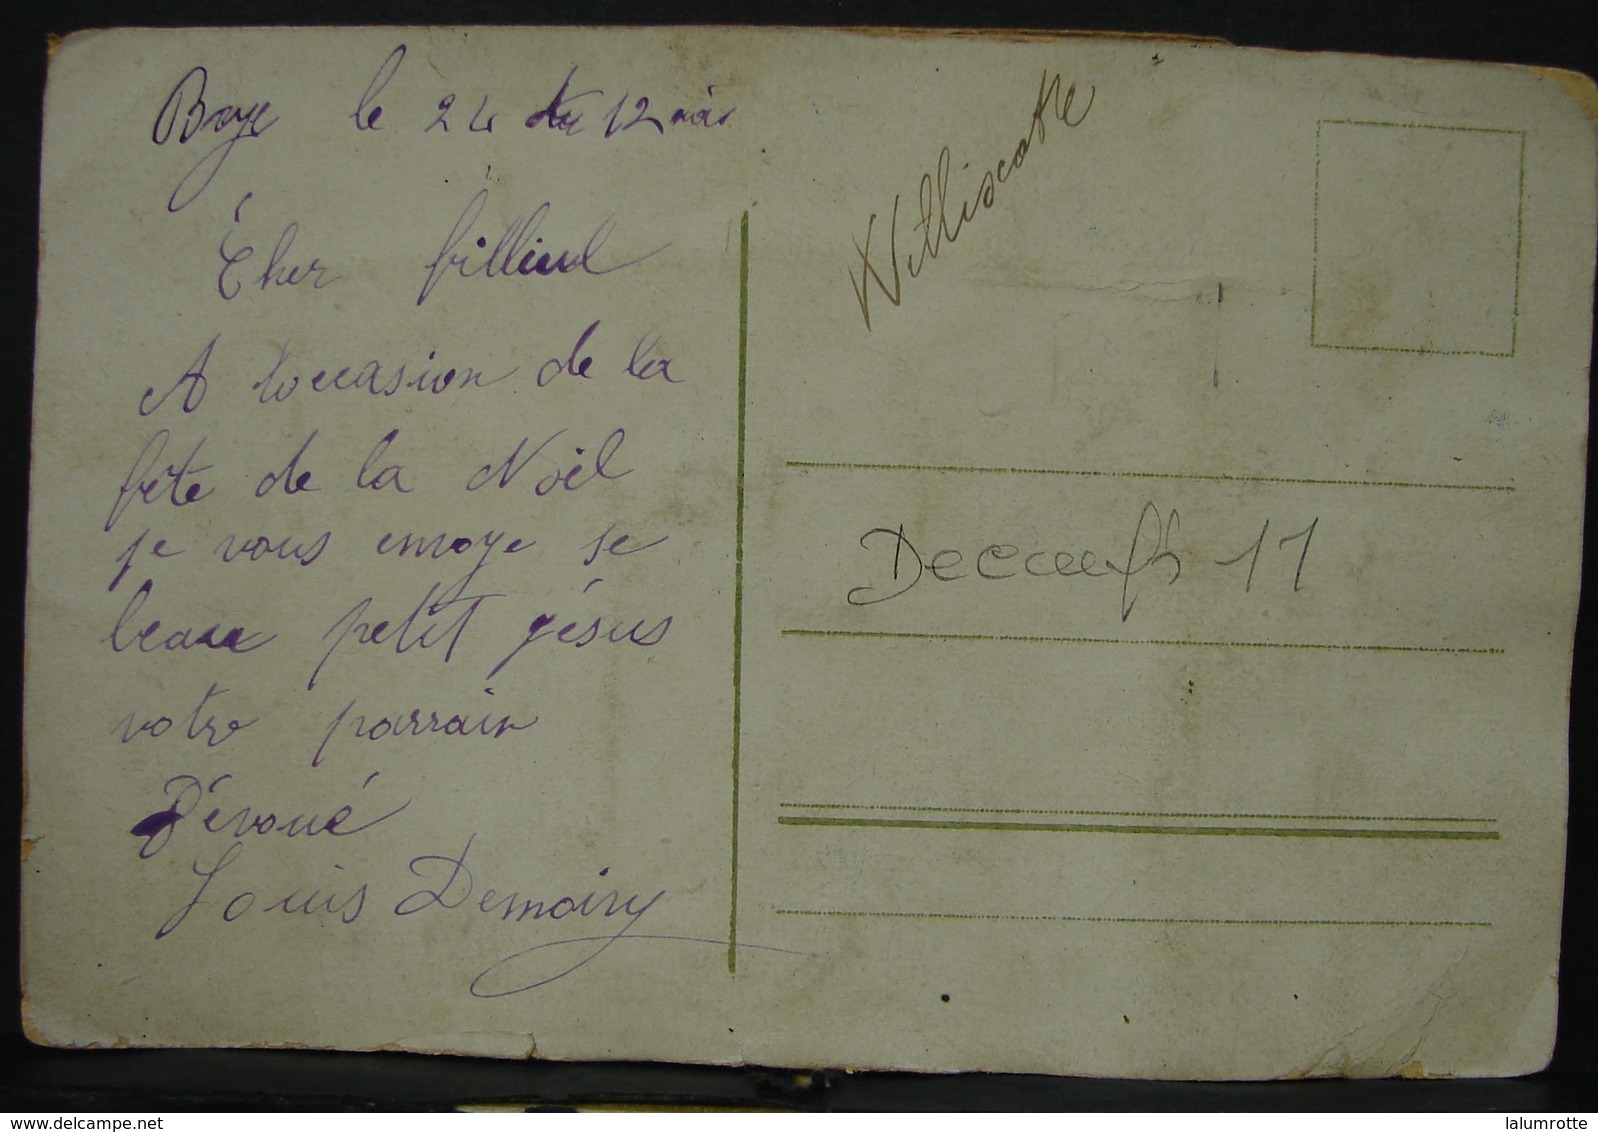 Braye le 24 du 12 mois
Cher fillieul
A l'occasion de la
fête de la Noël
je vous envoye se
beau petit jésus
votre parrain
Dévoué
Louis Demoiny
11
© delcampe.net
lalumrotte